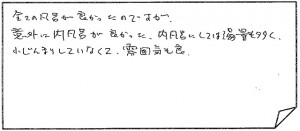 全ての風呂が良かったのですが、
意外に内風呂が良かった。内風呂にしては湯量も多く、
小じんまりしていなくて、雰囲気も良